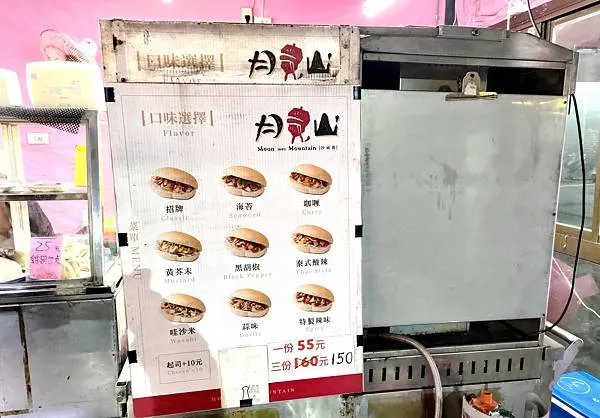 口味選擇
Flavor
月見山
口味選擇
Flavor
月見山
Moon Mountain
招牌
Classic
海苔
Seaweed
咖喱
Curry
黃芥末
Mustard
黑胡椒
Black Pepper
泰式酸辣
Thai Style
哇沙米
Wasabi
蒜味
Garlic
特製辣味
Spicy
菜單 MENU
起司+10元
Cheese+10
一份 55元
三份 160元 150
25元